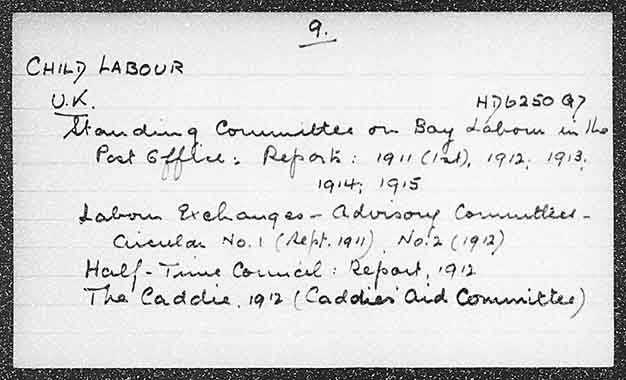 9.
CHILD LABOUR
U.K. HD6250 G7
Standing Committee on Boy Labour in the
Post Office: Reports: 1911 (1st), 1912; 1913;
1914; 1915
Labour Exchanges - Advisory Committees -
Circular No. 1 (Sept. 1911), No. 2 (1912)
Half-Time Council: Report, 1912
The Caddie, 1912 (Caddies' Aid Committee)